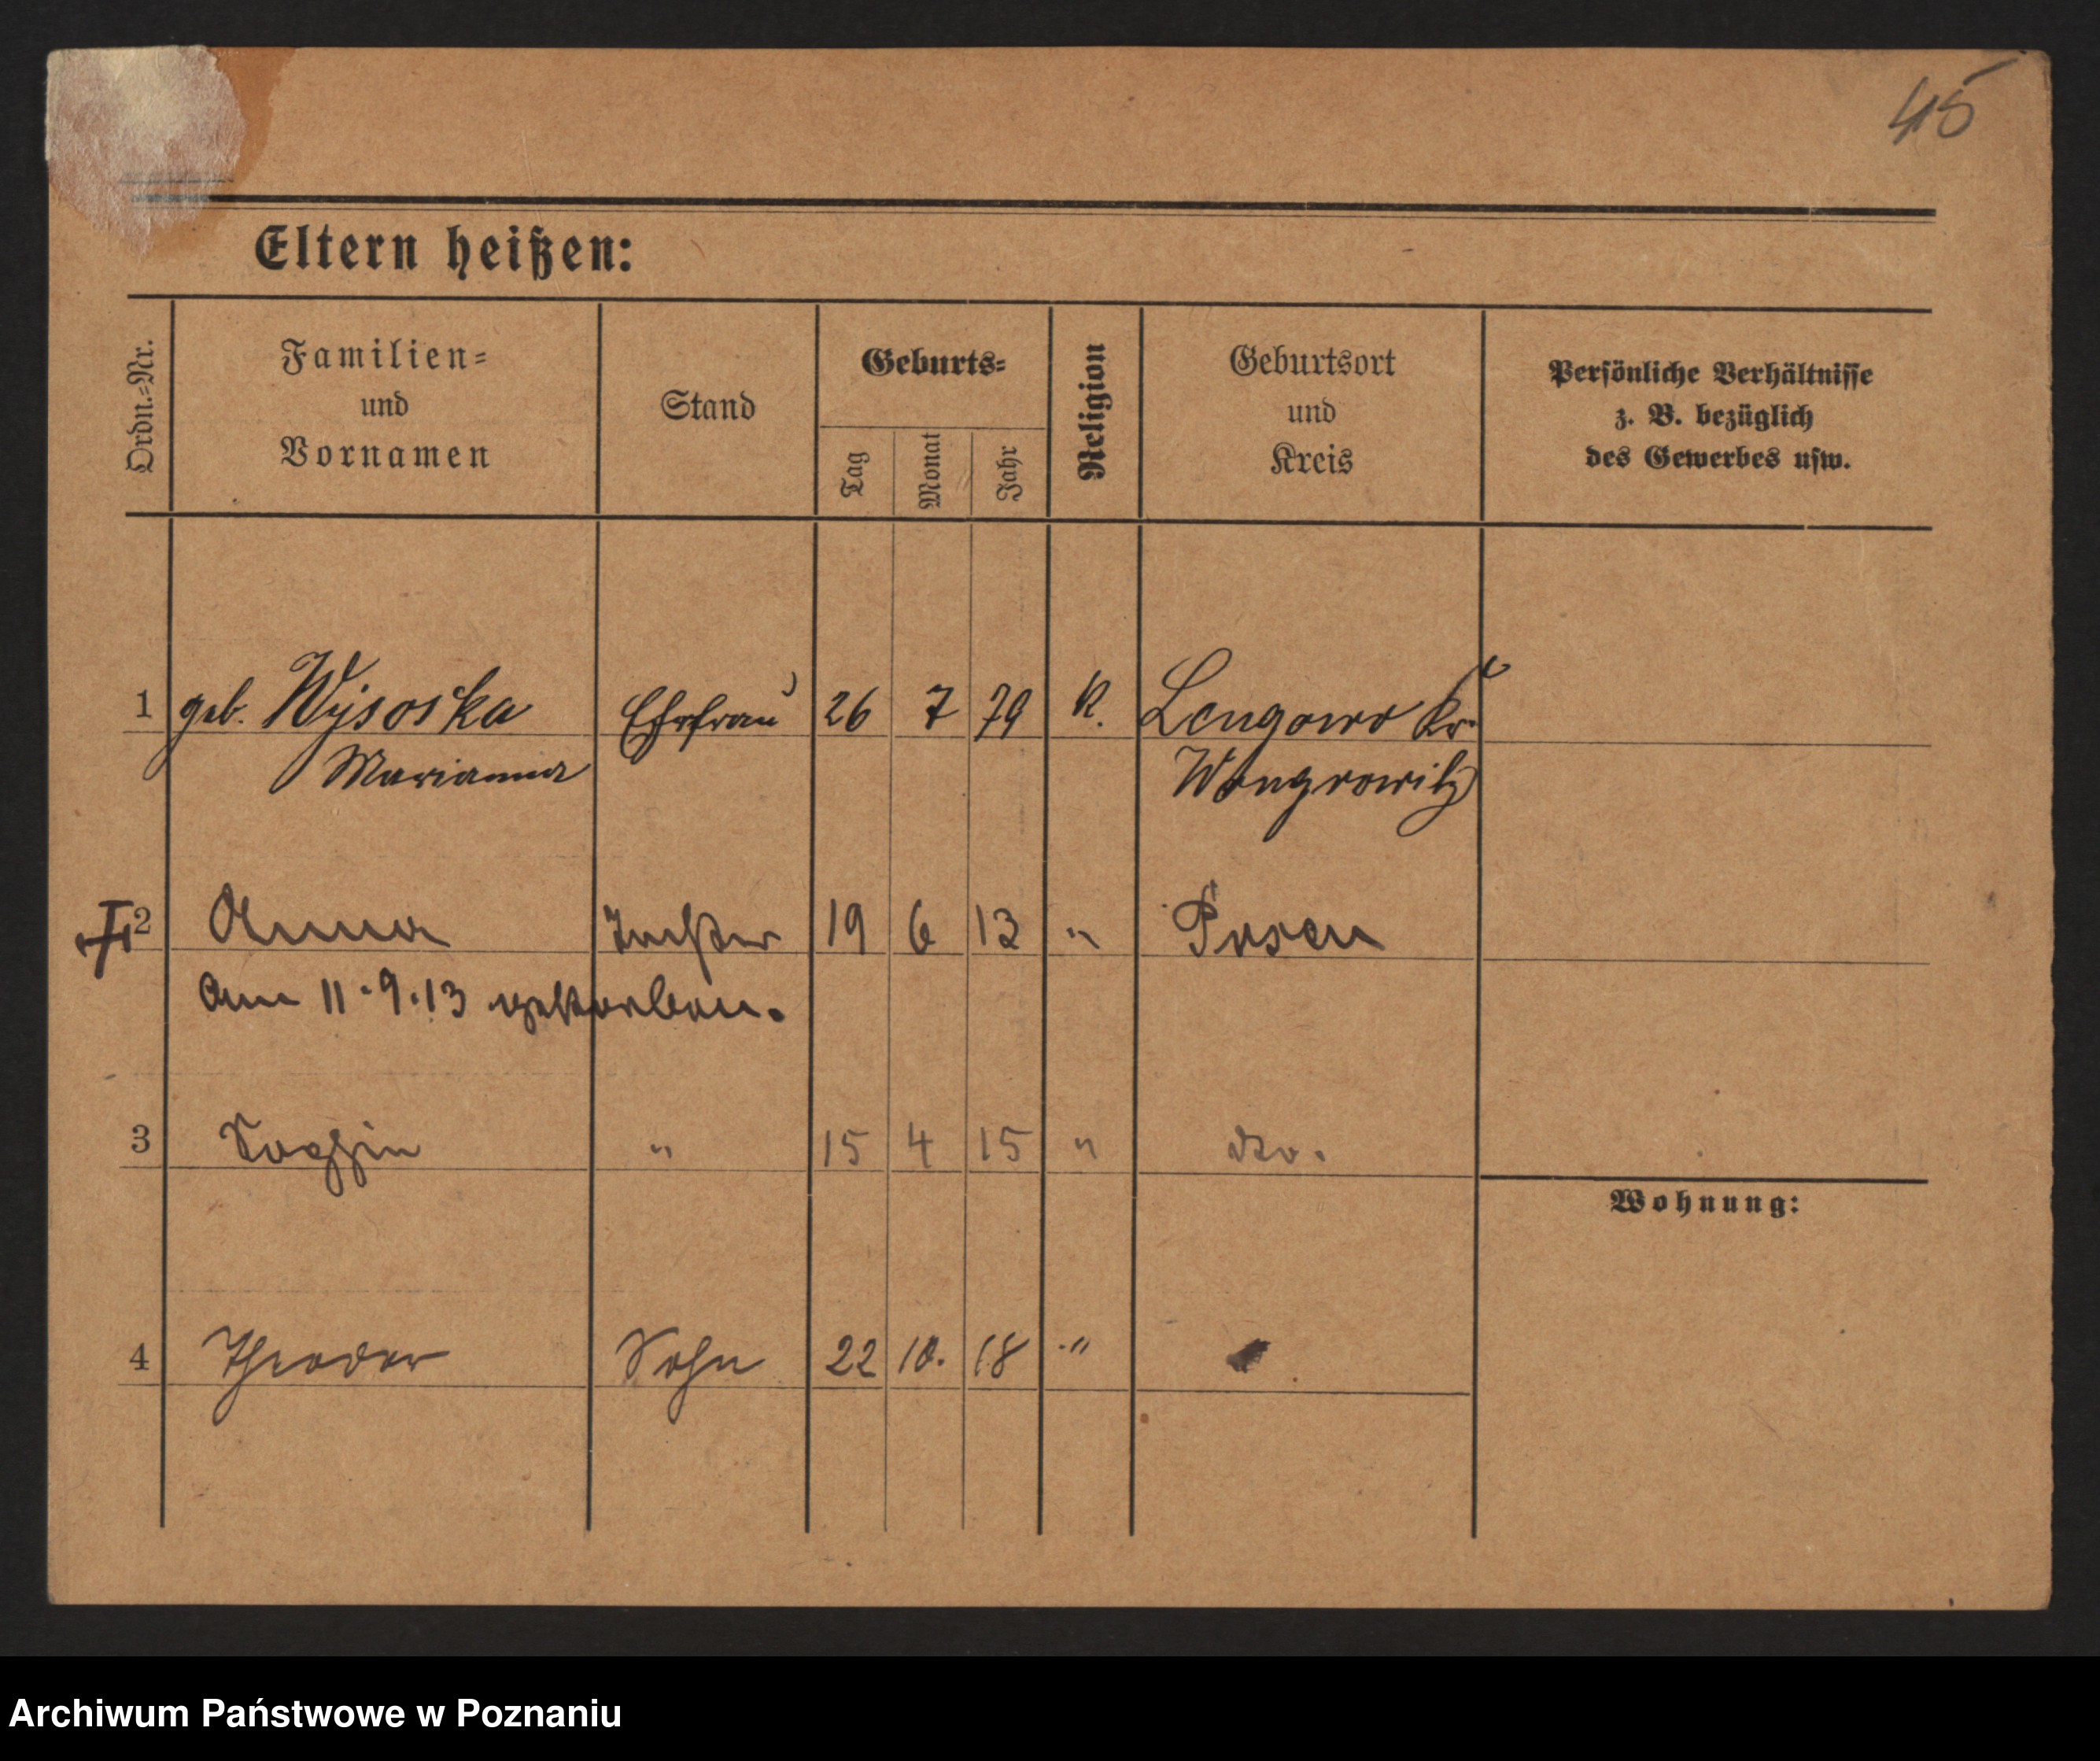 45
Eltern heißen:
Ordn.-Nr.
Familien-
und
Vornamen
Stand
Geburts-
Tag
Monat
Jahr
Religion
Geburtsort
und
Kreis
Persönliche Verhältnisse
z. B. bezüglich
des Gewerbes usw.
1 geb. Wysoska Ehefrau 26 7 79 K. Lengowo Kr.
Marianna Wongrowitz
2 Anna Tochter 19 6 13 " Posen
Am 11.9.13 gestorben.
3 Sophie " 15 4 15 " dto.
Wohnung:
4 Theodor Sohn 22 10. 18 "
Archiwum Państwowe w Poznaniu